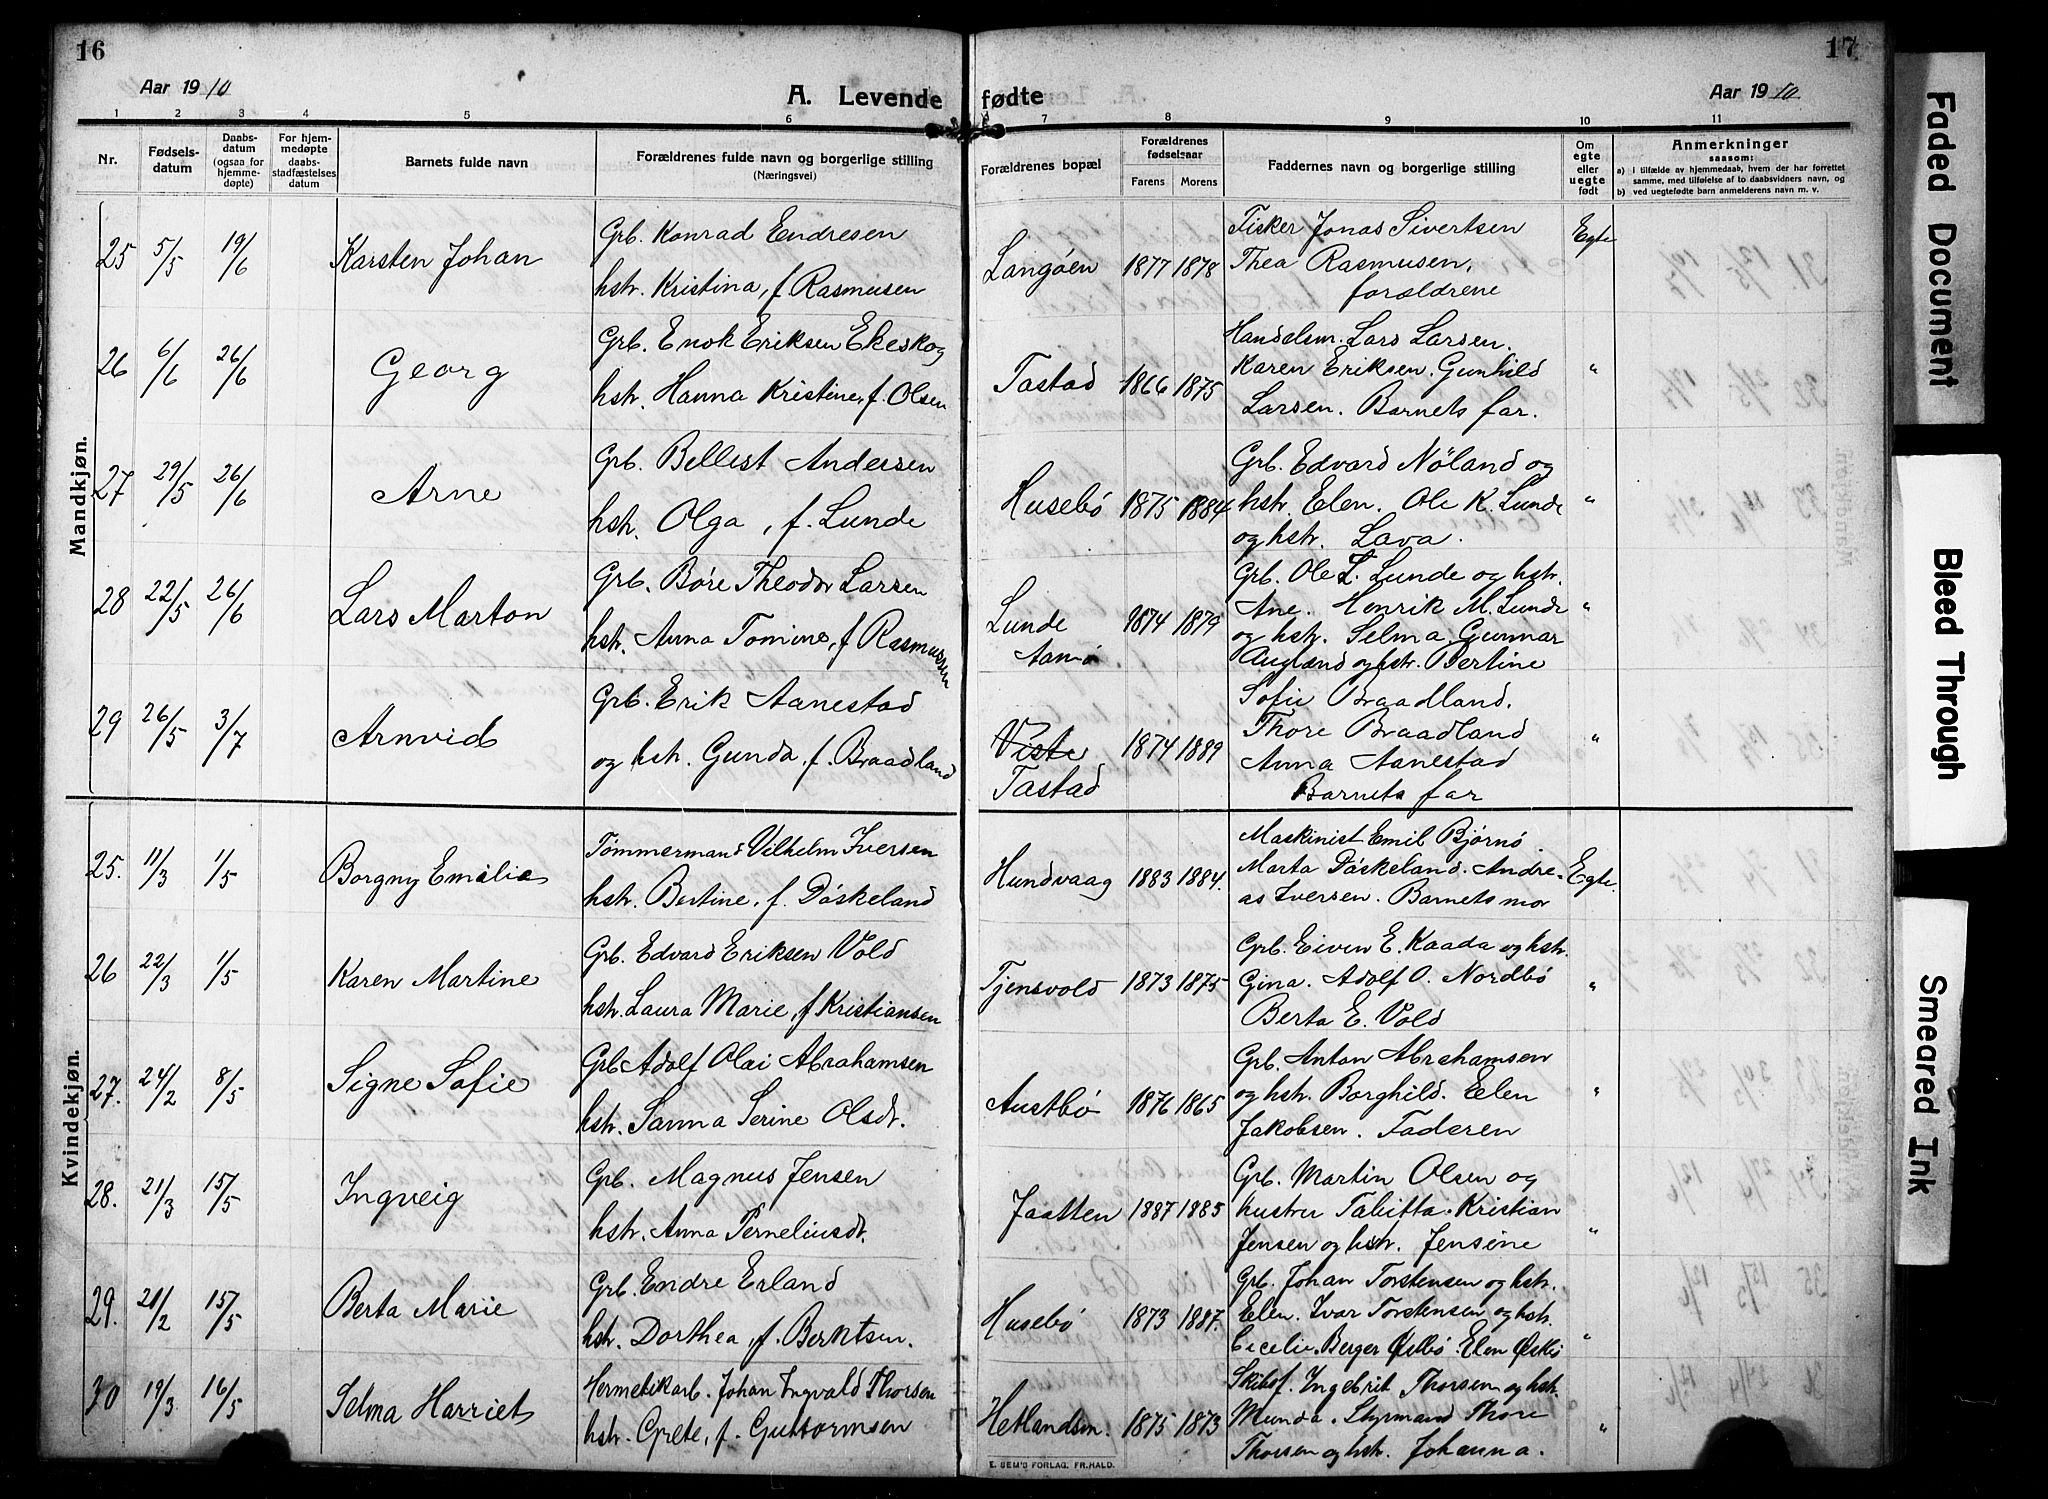 16
Aar 1910
A. Levende
1 2 3 4 5 6
Nr.
Fødsels-
datum
Daabs-
datum
(ogsaa for
hjemme-
døpte)
For hjem-
medøpte
daabs-
stadfæstelses
datum
Barnets fulde navn
Forældrenes fulde navn og borgerlige stilling
(Næringsvei)
Mandkjøn.
25 5/5 19/6 Karsten Johan
Grb. Konrad Endresen
hstr. Kristina, f. Rasmusen
26 6/6 26/6 Georg
Grb. Enok Eriksen Ekeskog
hstr. Hanna Kristine, f. Olsen
27 29/5 26/6 Arne
Grb. Bellest Andersen
hstr. Olga, f. Lunde
28 22/5 26/6 Lars Marton
Grb. Böre Theodor Larsen
hstr. Anna Tomine, f Rasmussen
29 26/5 3/7 Arnvid
Grb. Erik Aanestad
og hstr. Gunda, f. Braadland
Kvindekjøn.
25. 11/3 1/5 Borgny Emalie
Tömmermand Vilhelm Iversen
hstr. Bertine, f. Döskeland
26 22/3 1/5 Karen Martine
Grb. Edvard Eriksen Vold
hstr. Laura Marie, f Kristiansen
27. 24/2 8/5 Signe Sofie
Grb Adolf Olai Abrahamsen
hstr. Sanna Serine Olsdt.
28. 21/3 15/5 Ingveig
Grb. Magnus Jensen
hstr. Anna Perneliusdt.
29. 21/2 15/5 Berta Marie
Grb. Endre Erland
hstr. Dorthea, f. Berntsen.
30 19/3 16/5 Selma Harriet
Hermetikarb. Johan Ingvald Thorsen
hstr. Grete, f. Guttormsen
17
fødte
Aar 1910
7 8 9 10 11
Forældrenes bopæl
Forældrenes
fødselsaar
Farens Morens
Faddernes navn og borgerlige stilling
Om
egte
eller
uegte
født
Anmerkninger
saasom:
a) i tilfælde av hjemmedaab, hvem der har forrettet
samme, med tilføielse af to daabsvidners navn, og
b) ved uegtefødte barn anmelderens navn m. v.
Langöen 1877 1878
Fisker Jonas Sivertsen
Thea Rasmusen,
forældrene
Egte
Tastad 1866 1875
Handelsm. Lars Larsen.
Karen Eriksen. Gunhild
Larsen. Barnets far.
"
Husebö 1875 1884
Grb. Edvard Nöland og
hstr. Elen. Ole K. Lunde
og hstr. Lava.
"
Lunde
Aamö
1874 1879
Grb. Ole L. Lunde og hstr.
Ane. Henrik M. Lunde
og hstr. Selma. Gunnar
Augland og hstr. Bertine
"
Viste
Tastad
1874 1889
Sofie Braadland.
Thore Braadland
Anna Aanestad
Barnets far
"
Hundvaag 1883 1884.
Maskinist Emil Bjørnö.
Marta Döskeland. Andre-
as Iversen. Barnets mor
Egte.
Tjensvold 1873 1875
Grb. Eiven E. Kaada og hstr.
Gina. Adolf O. Nordbö
Berta E. Vold
"
Austbö 1876 1865
Grb. Anton Abrahamsen
og hstr. Borghild. Elen
Jakobsen. Faderen
"
Jaatten 1887 1885
Grb. Martin Olsen og
hustru Tabitta. Kristian
Jensen og hstr. Jensine
"
Husebö 1873 1887.
Grb. Johan Torstensen og hstr.
Elen. Ivar Torstensen og hstr.
Cecelie. Berger Østbö. Elen Østbö
"
Hetlandsm. 1875 1873
Skibsf. Ingebrit Thorsen og hstr.
Munda. Styrmand Thore
Thorsen og hstr. Johanna.
"
E. SEM'S FORLAG. FR.HALD.
Faded Document
Bleed Through
Smeared Ink